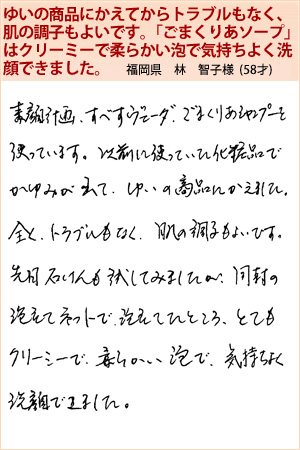 ゆいの商品にかえてからトラブルもなく、
肌の調子もよいです。「ごまくりあソープ」
はクリーミーで柔らかい泡で気持ちよく洗
顔できました。 福岡県 林 智子様 (58才)
素顔計画、すべすヴェーダ、ごまくりあシャンプーを
使っています。以前に使っていた化粧品で
かゆみが出て、ゆいの商品にかえました。
全く、トラブルもなく、肌の調子もよいです。
先日石けんも試してみましたが、同封の
泡立てネットで、泡立てたところ、とても
クリーミーで、柔らかい泡で、気持ちよく
洗顔できました。